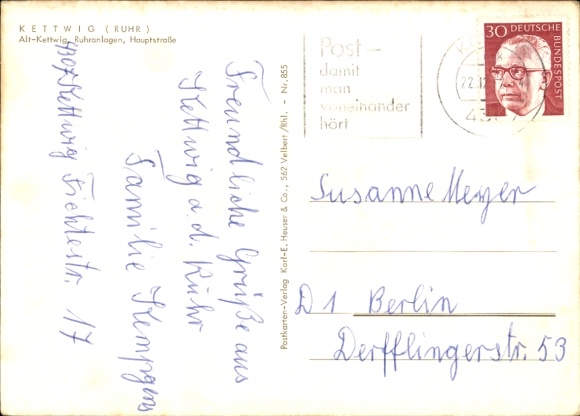 KETTWIG (RUHR)
Alt-Kettwig, Ruhranlagen, Hauptstraße
Freundliche Grüße aus
Kettwig a. d. Ruhr
Familie
4307 Kettwig Fichtestr. 17
Postkarten-Verlag Karl-E. Heuser & Co., 562 Velbert/Rhl. - Nr. 855
Post-
damit
man
voneinander
hört
22.12
43
30 DEUTSCHE
BUNDESPOST
Susanne Meyer
D 1 Berlin
Derfflingerstr. 53